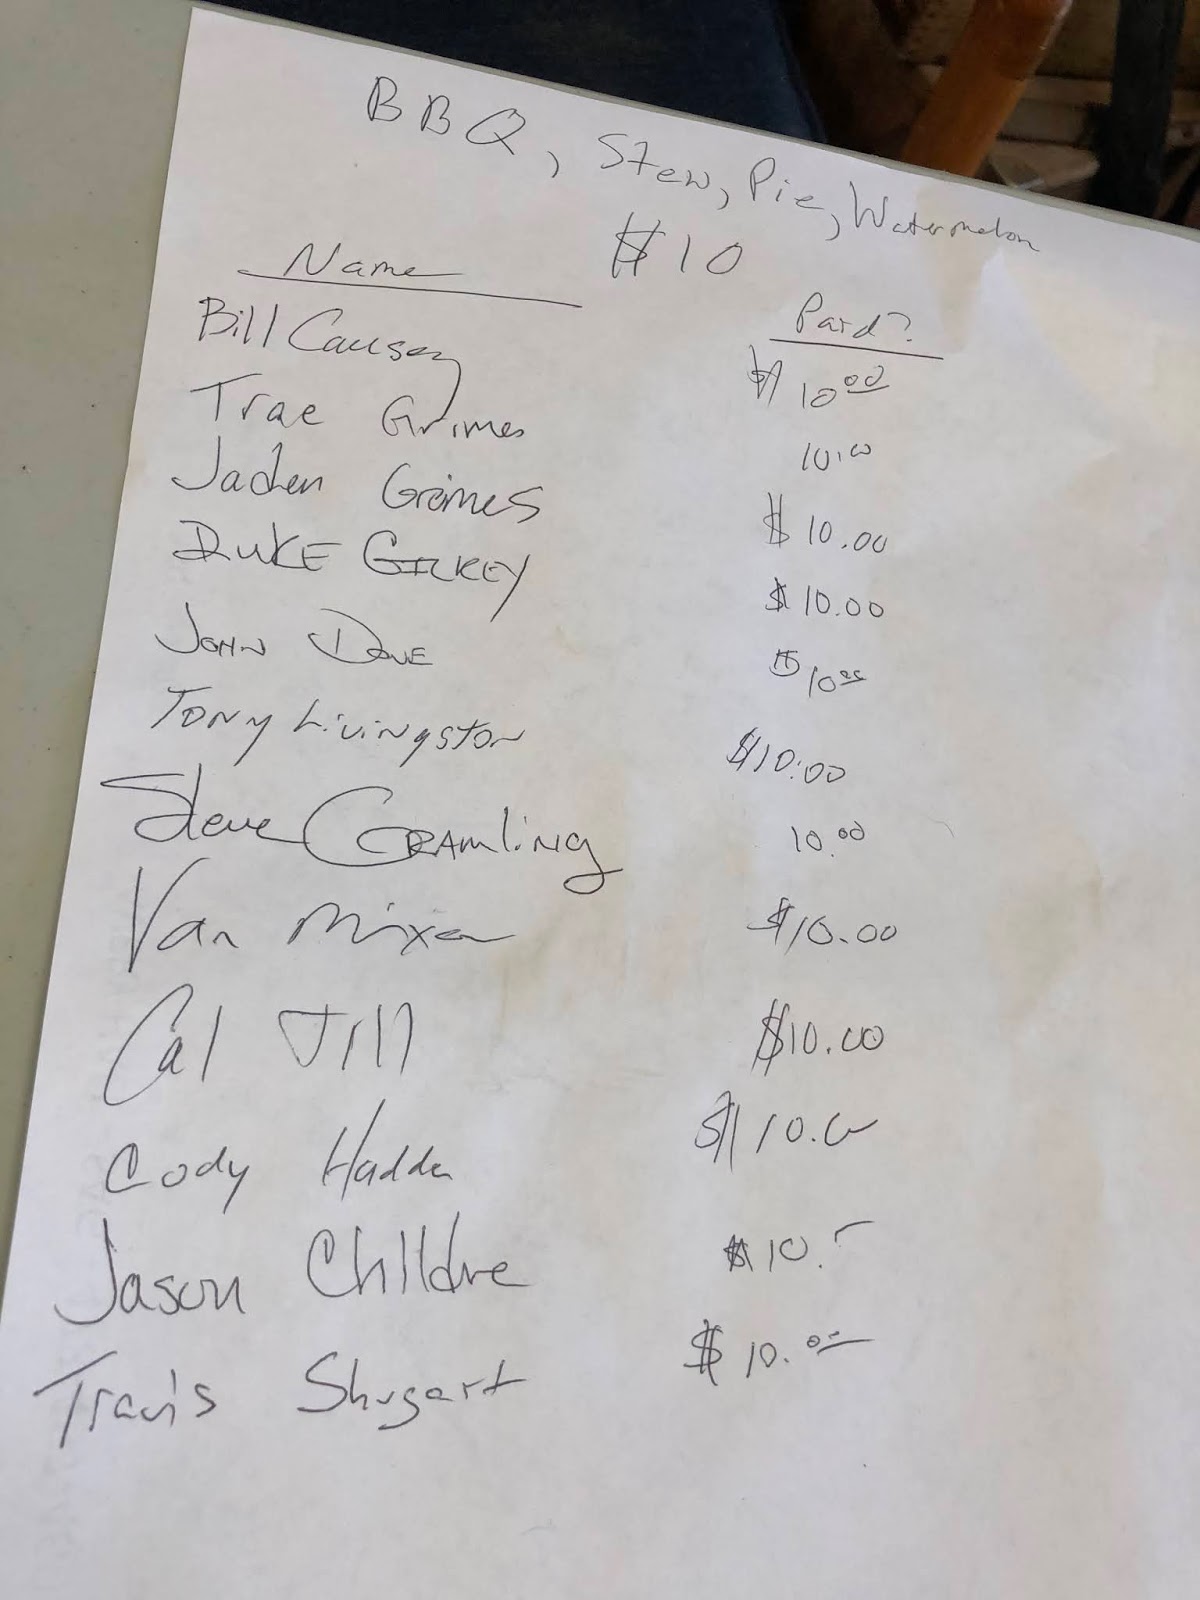 BBQ, Stew, Pie, Watermelon
$10
Name Paid?
Bill Causey $10.00
Trae Grimes 10.00
Jaden Grimes $10.00
DUKE GILKEY $10.00
JOHN DOVE $10.00
TONY Livingston $10.00
Steve GRAMLiNG 10.00
Van Mixon $10.00
Cal Jill $10.00
Cody Hadden $10.00
Jason Childre $10.
Travis Shugart $10.00